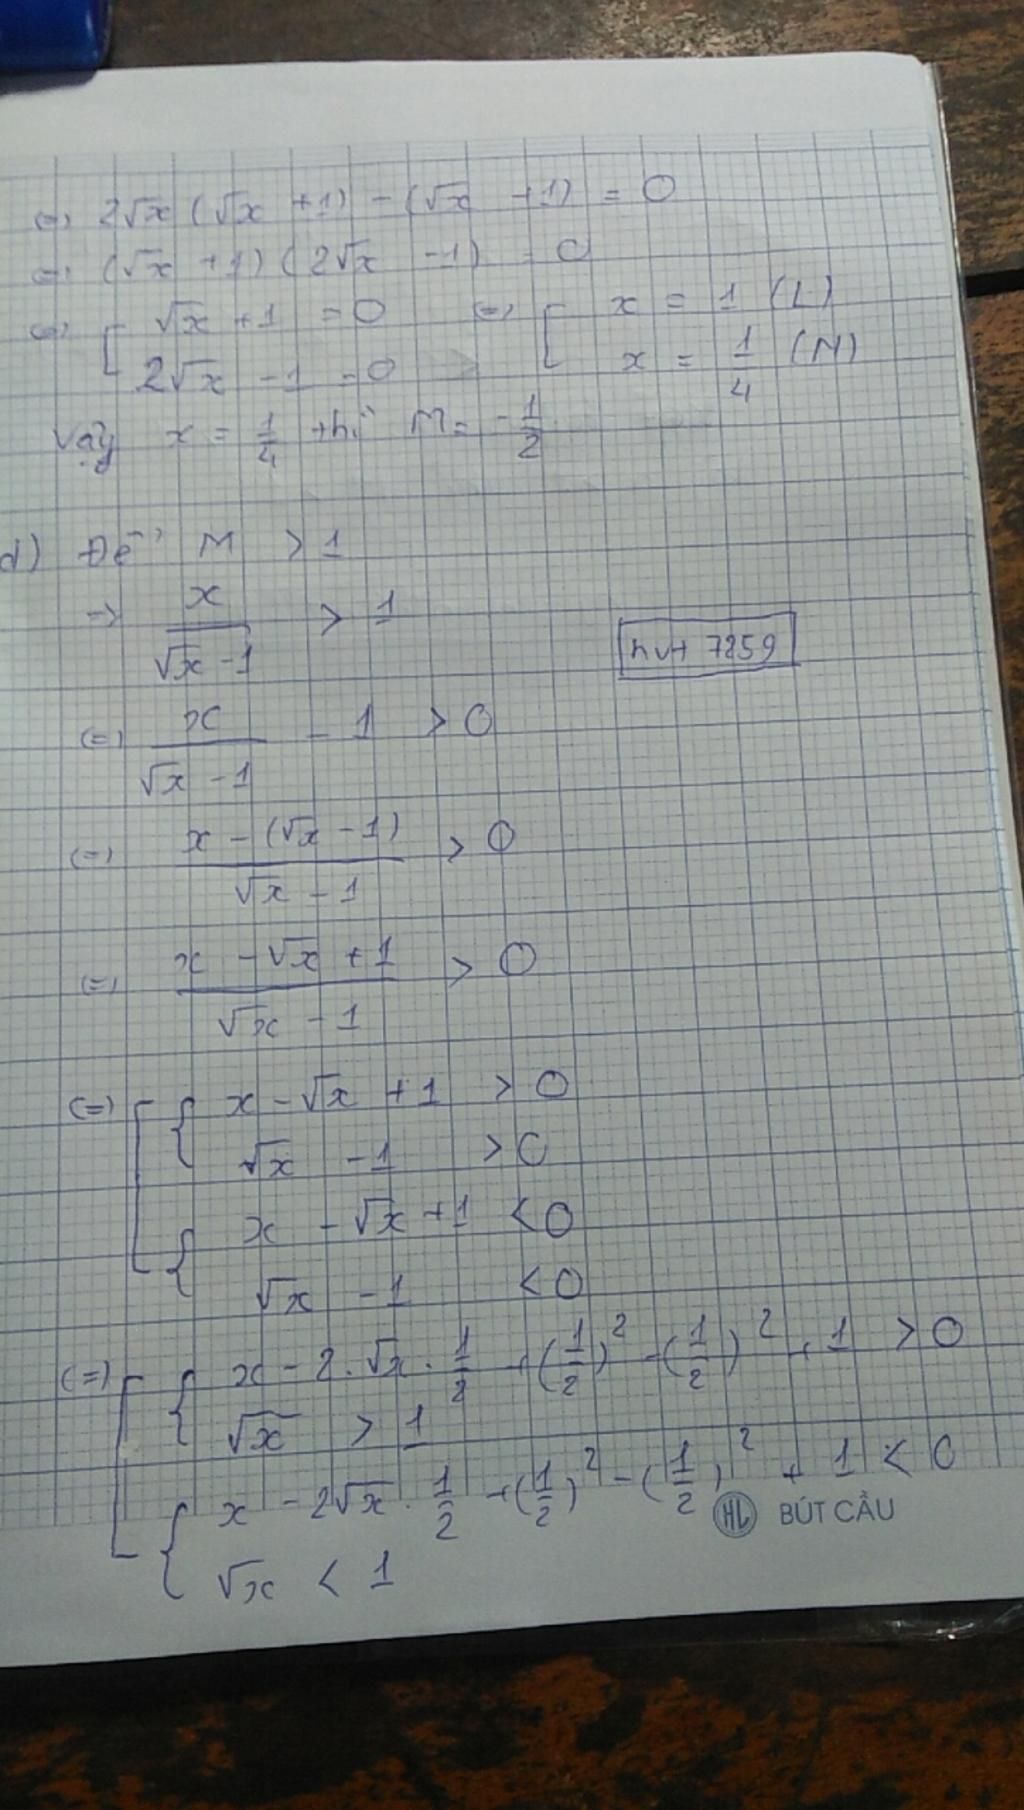 (=) 2√x (√x + 1) - (√x + 1) = 0
(=) (√x + 1) (2√x - 1) = 0
(=) [ √x + 1 = 0 (=) [ x = 1 (L)
2√x - 1 = 0 x = 1/4 (N)
Vậy x = 1/4 thì M = -1/2
d) Để M > 1
-> x/(√x - 1) > 1
hvt 7259
(=) x/(√x - 1) - 1 > 0
(=) (x - (√x - 1))/(√x - 1) > 0
(=) (x - √x + 1)/(√x - 1) > 0
(=) [ { x - √x + 1 > 0
√x - 1 > 0
{ x - √x + 1 < 0
√x - 1 < 0
(=) [ { x - 2.√x.1/2 + (1/2)² - (1/2)² + 1 > 0
√x > 1
{ x - 2√x.1/2 + (1/2)² - (1/2)² + 1 < 0
√x < 1
HL BÚT CẦU